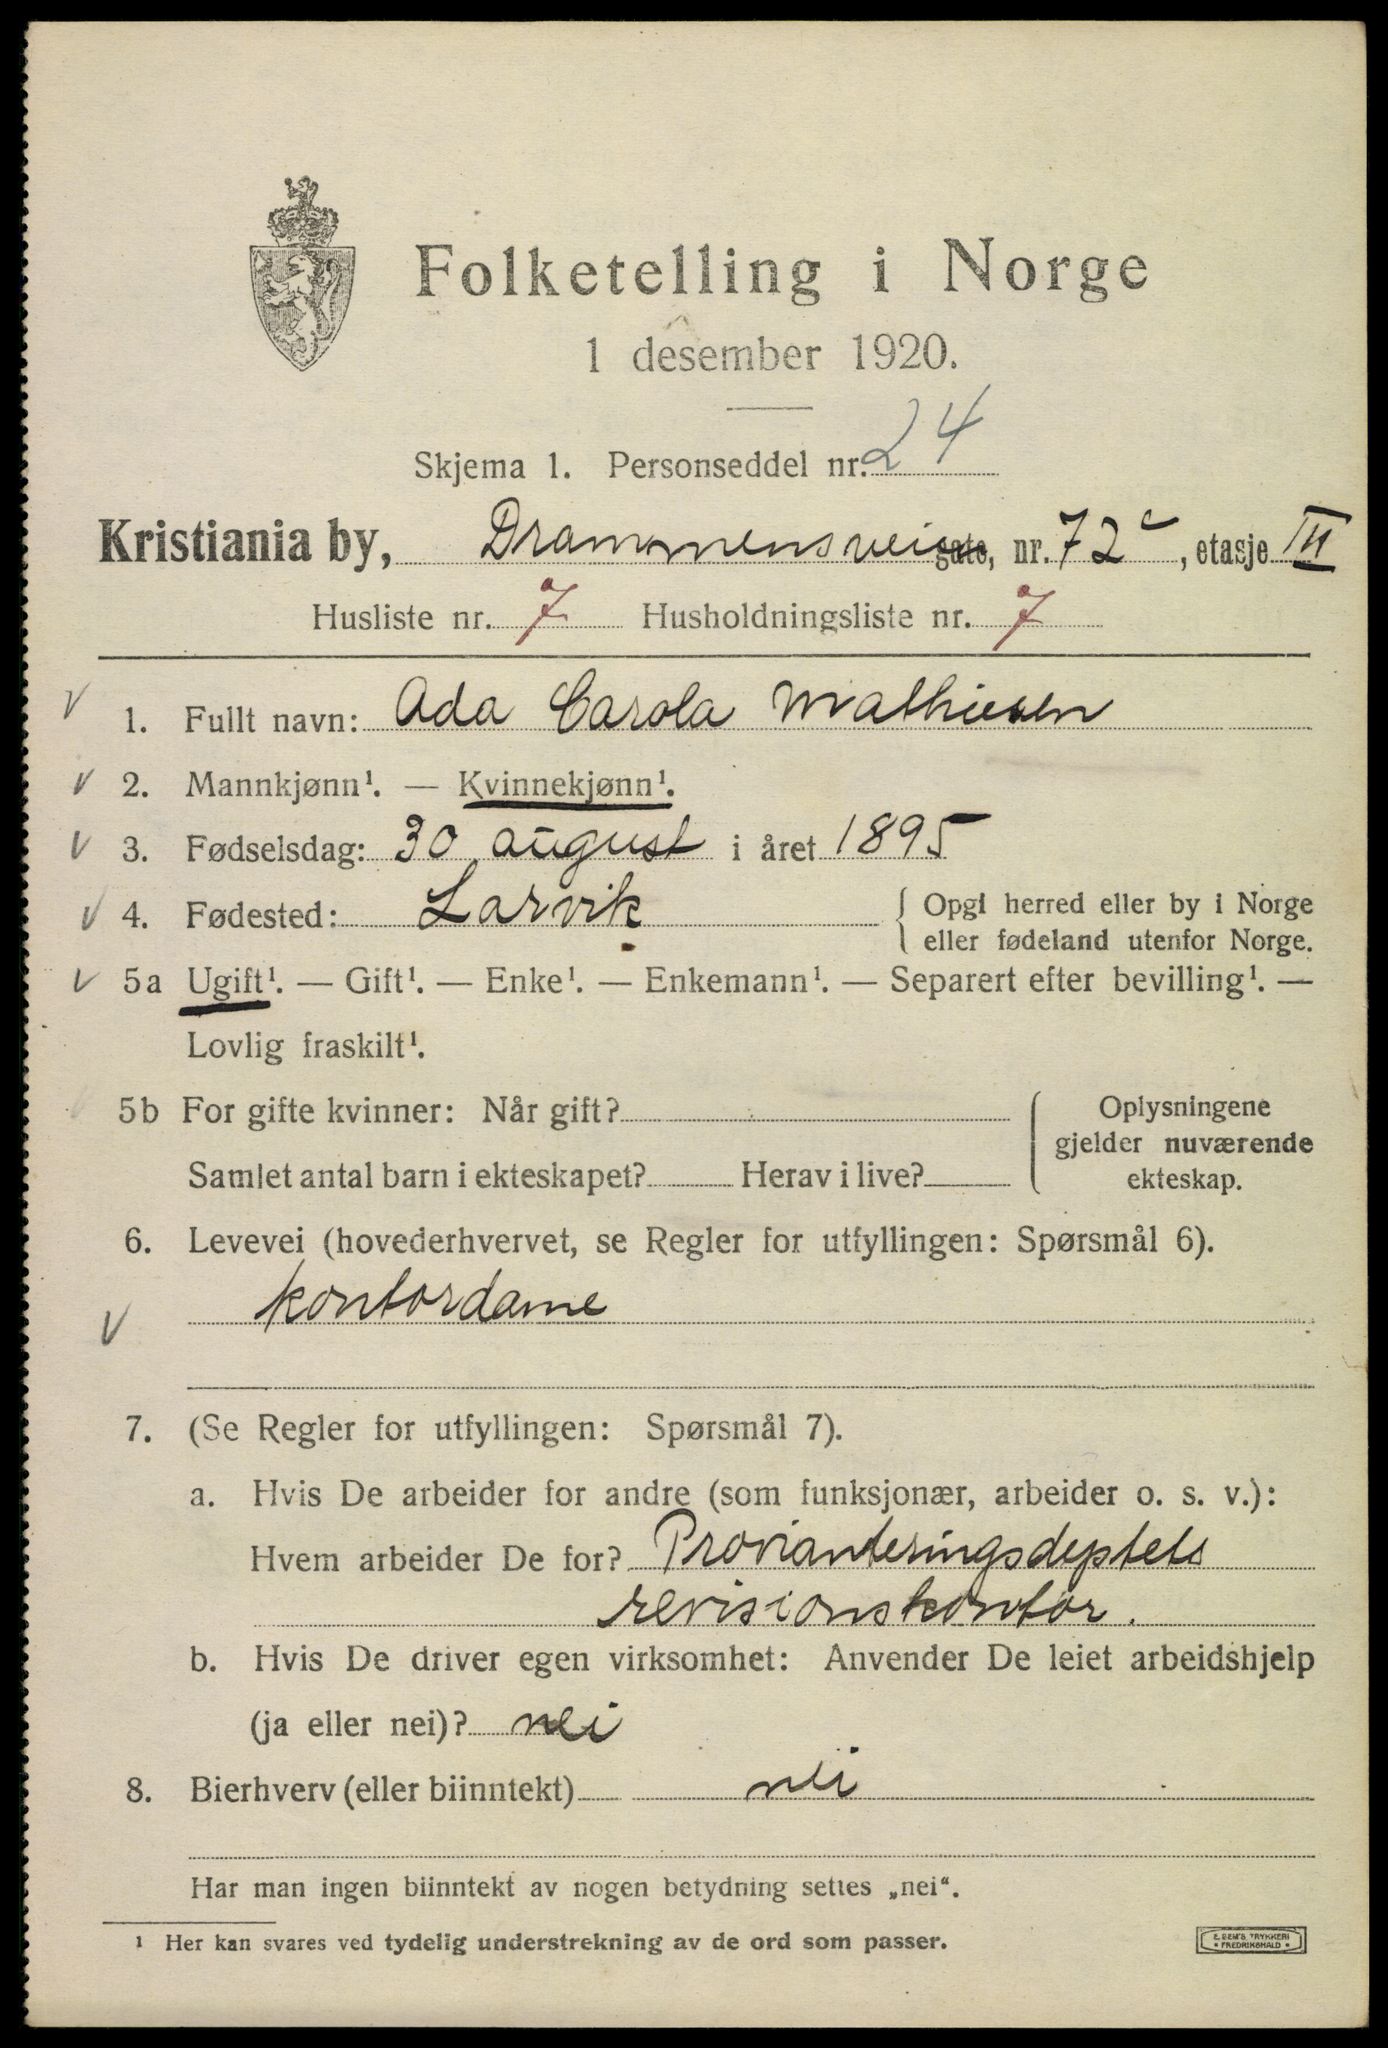 Folketelling i Norge
1 desember 1920.
Skjema 1. Personseddel nr. 24
Kristiania by, Drammensveien gate, nr. 72c, etasje III
Husliste nr. 7 Husholdningsliste nr. 7
1. Fullt navn: Ada Carola Mathiesen
2. Mannkjønn¹. — Kvinnekjønn¹.
3. Fødselsdag: 30 august i året 1895
4. Fødested: Larvik { Opgi herred eller by i Norge
eller fødeland utenfor Norge.
5a Ugift¹. — Gift¹. — Enke¹. — Enkemann¹. — Separert efter bevilling¹. —
Lovlig fraskilt¹.
5b For gifte kvinner: Når gift? { Oplysningene
gjelder nuværende
Samlet antal barn i ekteskapet? Herav i live? ekteskap.
6. Levevei (hovederhvervet, se Regler for utfyllingen: Spørsmål 6).
kontordame
7. (Se Regler for utfyllingen: Spørsmål 7).
a. Hvis De arbeider for andre (som funksjonær, arbeider o. s. v.):
Hvem arbeider De for? Provianteringsdeptets
revisionskontor.
b. Hvis De driver egen virksomhet: Anvender De leiet arbeidshjelp
(ja eller nei)? nei
8. Bierhverv (eller biinntekt) nei
Har man ingen biinntekt av nogen betydning settes „nei“.
¹ Her kan svares ved tydelig understrekning av de ord som passer.
E. SEM'S TRYKKERI
• FREDRIKSHALD •